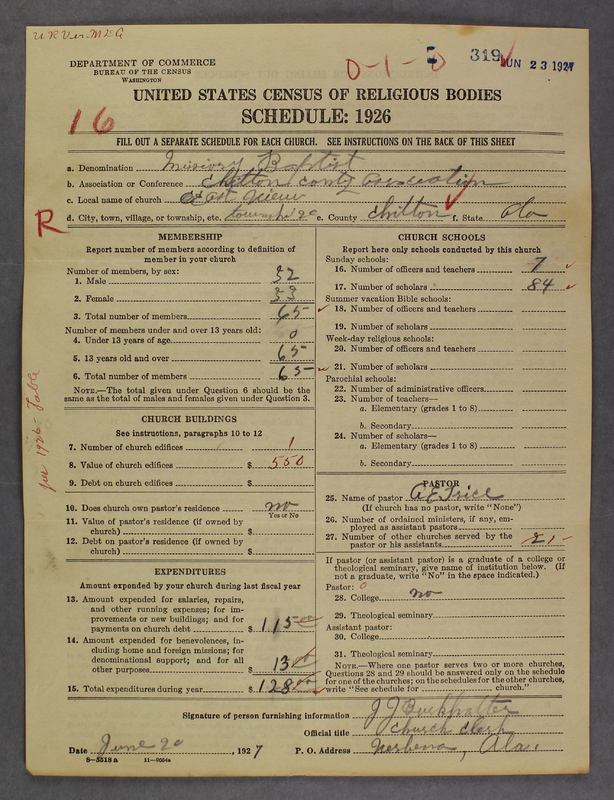 U R Ver. M & G
DEPARTMENT OF COMMERCE
BUREAU OF THE CENSUS
WASHINGTON
0-1-0
319
JUN 23 1927
16
UNITED STATES CENSUS OF RELIGIOUS BODIES
SCHEDULE: 1926
FILL OUT A SEPARATE SCHEDULE FOR EACH CHURCH. SEE INSTRUCTIONS ON THE BACK OF THIS SHEET
a. Denomination Missiony Baptist
b. Association or Conference Chilton County Association
c. Local name of church East View
R
d. City, town, village, or township, etc. township 20 e. County Chilton f. State Ala
MEMBERSHIP
Report number of members according to definition of
member in your church
Number of members, by sex:
1. Male 32
2. Female 33
3. Total number of members 65
Number of members under and over 13 years old:
4. Under 13 years of age 0
5. 13 years old and over 65
6. Total number of members 65
NOTE.—The total given under Question 6 should be the
same as the total of males and females given under Question 3.
CHURCH BUILDINGS
See instructions, paragraphs 10 to 12
7. Number of church edifices 1
8. Value of church edifices $ 550
9. Debt on church edifices $
10. Does church own pastor's residence no
Yes or No
11. Value of pastor's residence (if owned by
church) $
12. Debt on pastor's residence (if owned by
church) $
EXPENDITURES
Amount expended by your church during last fiscal year
13. Amount expended for salaries, repairs,
and other running expenses; for im-
provements or new buildings; and for
payments on church debt $ 115 00
14. Amount expended for benevolences, in-
cluding home and foreign missions; for
denominational support; and for all
other purposes $ 13 00
15. Total expenditures during year $ 128 00
CHURCH SCHOOLS
Report here only schools conducted by this church
Sunday schools:
16. Number of officers and teachers 7
17. Number of scholars 84
Summer vacation Bible schools:
18. Number of officers and teachers
19. Number of scholars
Week-day religious schools:
20. Number of officers and teachers
21. Number of scholars
Parochial schools:
22. Number of administrative officers
23. Number of teachers—
a. Elementary (grades 1 to 8)
b. Secondary
24. Number of scholars—
a. Elementary (grades 1 to 8)
b. Secondary
PASTOR
25. Name of pastor A E Price
(If church has no pastor, write "None")
26. Number of ordained ministers, if any, em-
ployed as assistant pastors
27. Number of other churches served by the
pastor or his assistants 2
If pastor (or assistant pastor) is a graduate of a college or
theological seminary, give name of institution below. (If
not a graduate, write "No" in the space indicated.)
Pastor: 0
28. College no
29. Theological seminary
Assistant pastor:
30. College
31. Theological seminary
NOTE.—Where one pastor serves two or more churches,
Questions 28 and 29 should be answered only on the schedule
for one of the churches; on the schedules for the other churches,
write "See schedule for church."
Signature of person furnishing information J J Burkhalter
Official title Church Clerk
Date June 20, 1927 P. O. Address Verbena, Ala.
8—5518 a 11—9054a